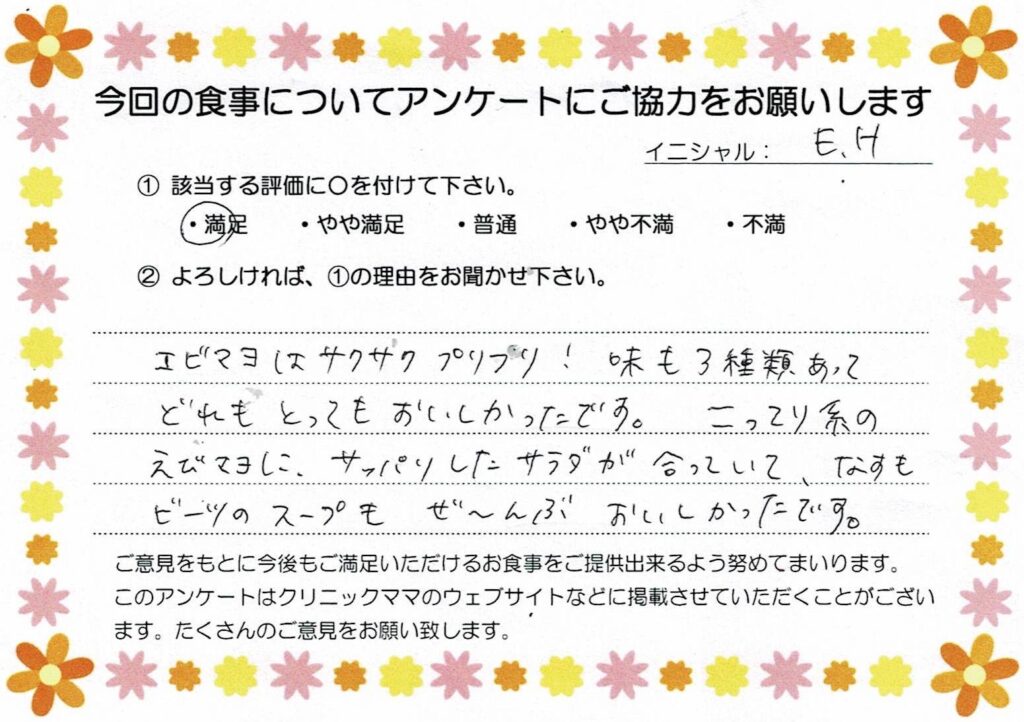 今回の食事についてアンケートにご協力をお願いします
イニシャル： E、H
① 該当する評価に〇を付けて下さい。
・満足 ・やや満足 ・普通 ・やや不満 ・不満
② よろしければ、①の理由をお聞かせ下さい。
エビマヨはサクサクプリプリ！ 味も3種類あって
どれもとってもおいしかったです。 こってり系の
えびマヨに、サッパリしたサラダが合っていて、なすも
ビーツのスープも ぜ〜んぶ おいしかったです。
ご意見をもとに今後もご満足いただけるお食事をご提供出来るよう努めてまいります。
このアンケートはクリニックママのウェブサイトなどに掲載させていただくことがござい
ます。たくさんのご意見をお願い致します。